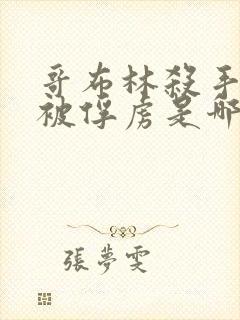 哥布林殺手
被俘虜是哪
張夢雯